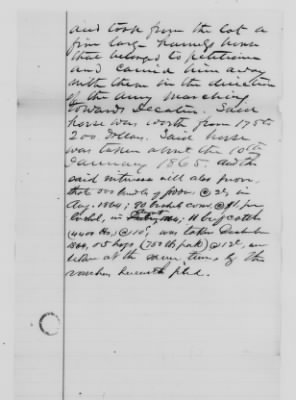 and took from the lot a
fine large horse
that belonged to petitioner
and carried him away
with them in the direction
of the army marching
towards Decatur. Said
horse was worth from 175 to
200 dollars. Said horse
was taken about the 10th
January 1865. And the
said witness will also prove
that 500 of @ 2½ in
Aug. 1864; 90 bushels corn @ $1 per
bushel, in 1864; 11 beef cattle
(4400 lbs) @ 10¢, was taken
1864, hogs (750 lbs pork) @ 12¢,
at the same time, by the
vouchers herewith filed.